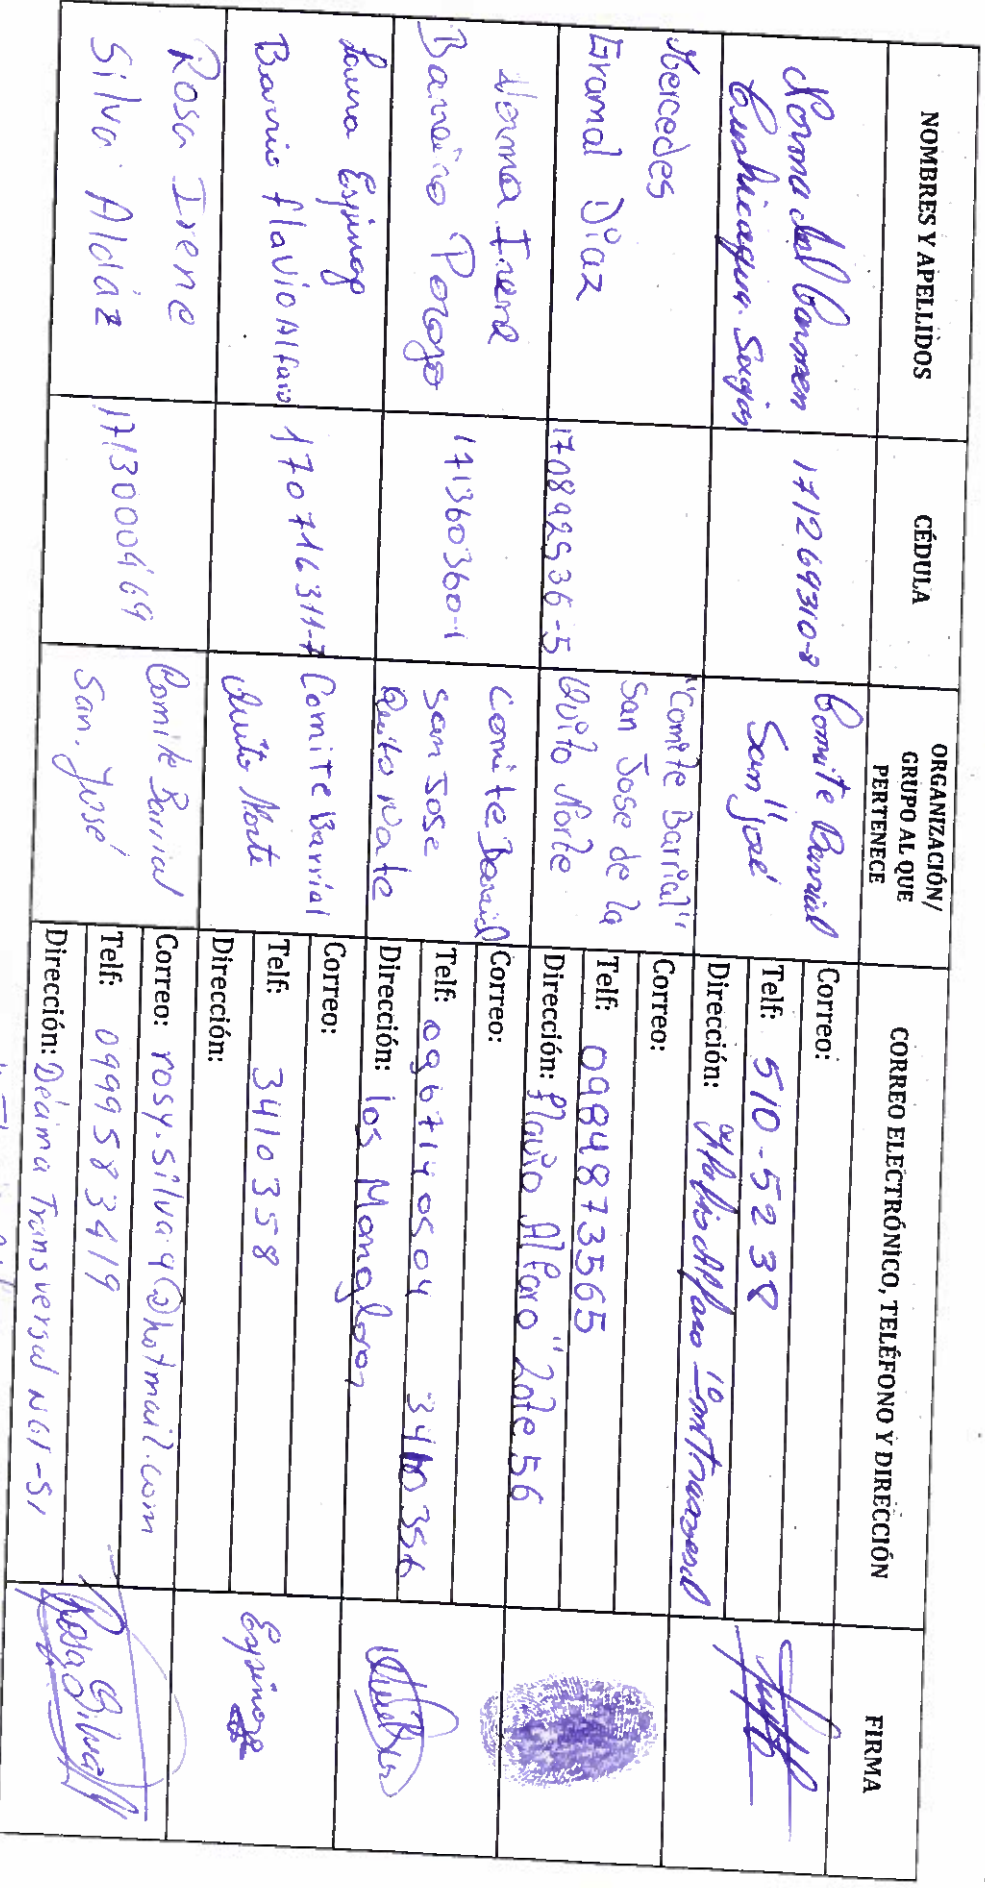 NOMBRES Y APELLIDOS
CÉDULA
ORGANIZACIÓN/
GRUPO AL QUE
PERTENECE
CORREO ELECTRÓNICO, TELÉFONO Y DIRECCIÓN
FIRMA
Norma del Carmen
171269310-8
Comite Barrial
San José
Correo:
Telf: 510-5238
Dirección: Flavio Alfaro
Mercedes
Gramal Diaz
170892936-5
"Comite Barrial"
San Jose de la
Quito Norte
Correo:
Telf: 0984873565
Dirección: Flavio Alfaro" Lote 56
Norma Irene
Barreiro Porozo
171360360-1
Comite Barrial
San Jose
Quito Norte
Correo:
Telf: 0967140504
Dirección: los Mangloros
Laura Espinoza
Barrio Flavio Alfaro
170716311-7
Comite Barrial
Quito Norte
Correo:
Telf: 3410358
Dirección:
Espinoza
Rosa Irene
Silva Aldáz
1713000469
Comite Barrial
San. José
Correo: rosy.silva.4@hotmail.com
Telf: 0999583419
Dirección: Décima Transversal N61-51
Rosa Silva